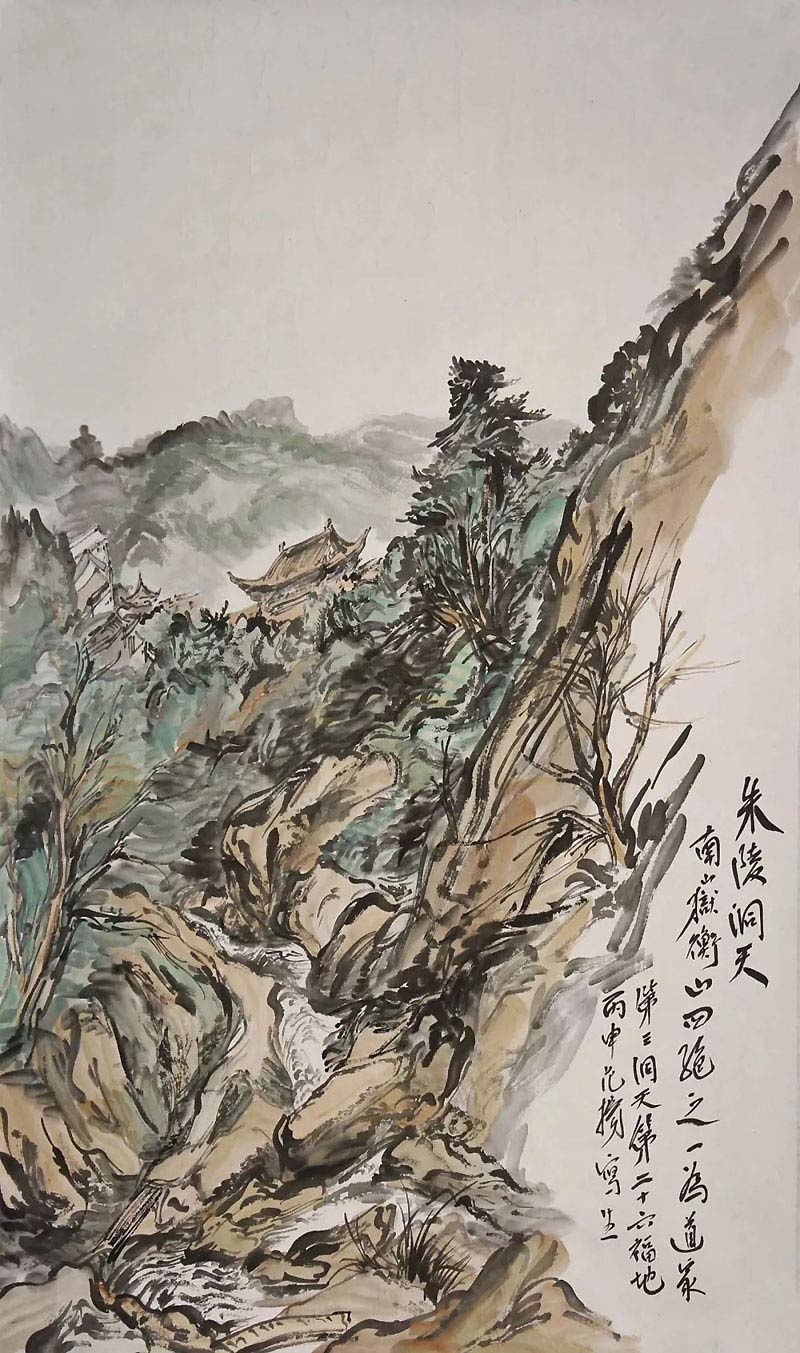 朱陵洞天
南山嶽衡山四絶之一為道家
第三洞天第二十六福地
丙申范揚寫生